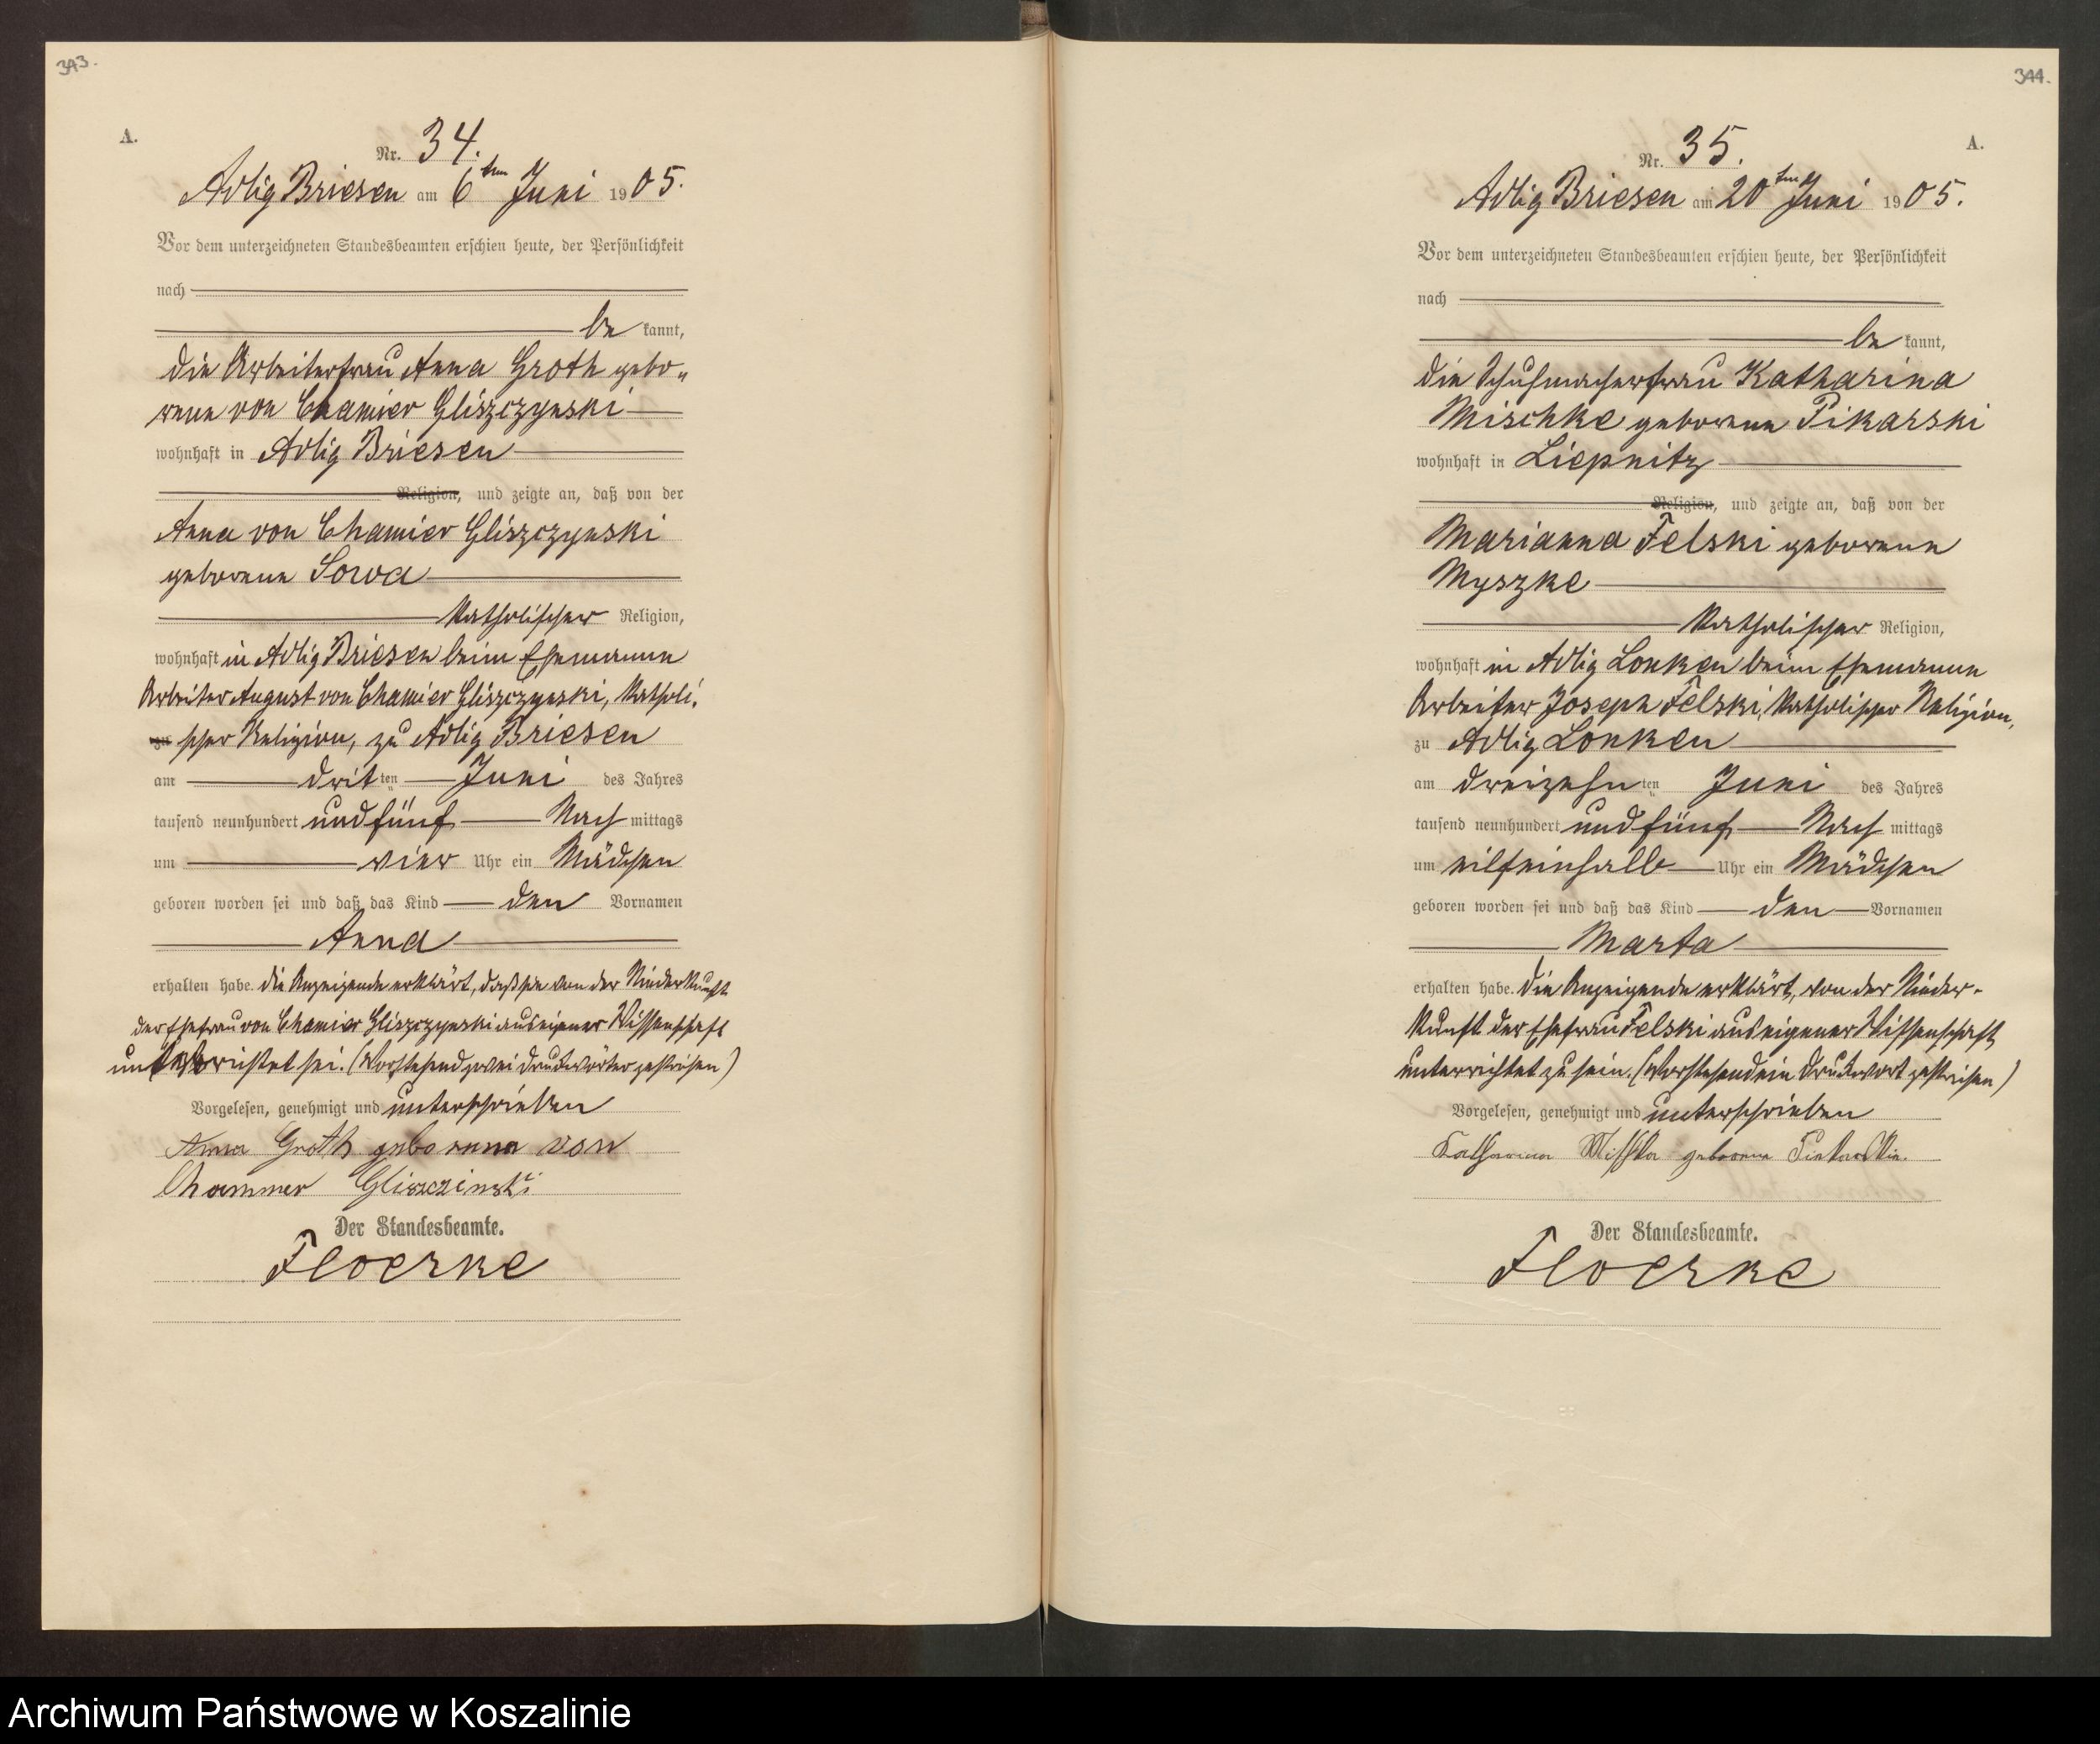 343.
A.
Nr. 34.
Adlig Briesen am 6ten Juni 1905.
Vor dem unterzeichneten Standesbeamten erschien heute, der Persönlichkeit
nach
be kannt,
die Arbeiterfrau Anna Groth gebo-
rene von Chamier Gliszczynski
wohnhaft in Adlig Briesen
Religion, und zeigte an, daß von der
Anna von Chamier Gliszczynski
geborene Sowa
katholischer Religion,
wohnhaft in Adlig Briesen beim Ehemanne
Arbeiter August von Chamier Gliszczynski, katholi-
zu scher Religion, zu Adlig Briesen
am dritten Juni des Jahres
tausend neunhundert und fünf Nach mittags
um vier Uhr ein Mädchen
geboren worden sei und daß das Kind den Vornamen
Anna
erhalten habe. Die Anzeigende erklärt, daß sie von der Niederkunft
der Ehefrau von Chamier Gliszczynski aus eigener Wissenschaft
unterrichtet sei. (Vorstehend zwei Druckwörter gestrichen)
Vorgelesen, genehmigt und unterschrieben
Anna Groth geborene von
Chammer Gliszczinski
Der Standesbeamte.
Floerke
344.
A.
Nr. 35.
Adlig Briesen am 20ten Juni 1905.
Vor dem unterzeichneten Standesbeamten erschien heute, der Persönlichkeit
nach
be kannt,
die Schuhmacherfrau Katharina
Mischke geborene Pikarski
wohnhaft in Liepnitz
Religion, und zeigte an, daß von der
Marianna Felski geborene
Myszke
katholischer Religion,
wohnhaft in Adlig Lonken beim Ehemanne
Arbeiter Joseph Felski, katholischer Religion,
zu Adlig Lonken
am dreizehnten Juni des Jahres
tausend neunhundert und fünf Nach mittags
um eilfeinhalb Uhr ein Mädchen
geboren worden sei und daß das Kind den Vornamen
Marta
erhalten habe. Die Anzeigende erklärt, von der Nieder-
kunft der Ehefrau Felski aus eigener Wissenschaft
unterrichtet zu sein. (Vorstehend ein Druckwort gestrichen)
Vorgelesen, genehmigt und unterschrieben
Katharina geborene
Der Standesbeamte.
Floerke
Archiwum Państwowe w Koszalinie